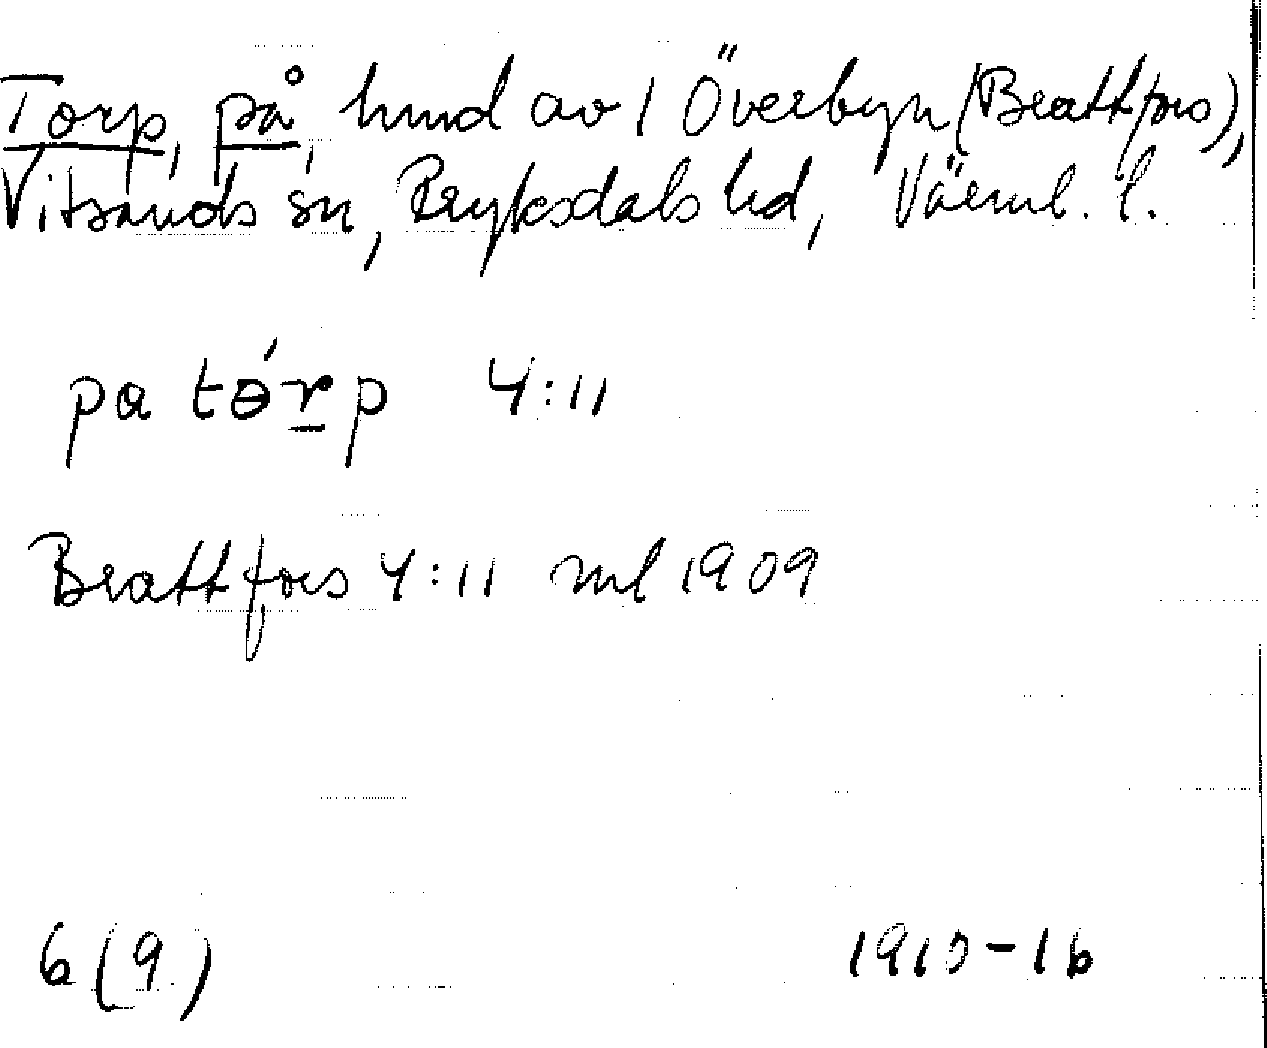 Torp, på, hmd av 1 Överbyn (Brattfors),
Vitsands sn, Fryksdals hd, Värml. l.
pa tɵ́r̲p 4:11
Brattfors 4:11 ml 1909
6 (9)
1910-16